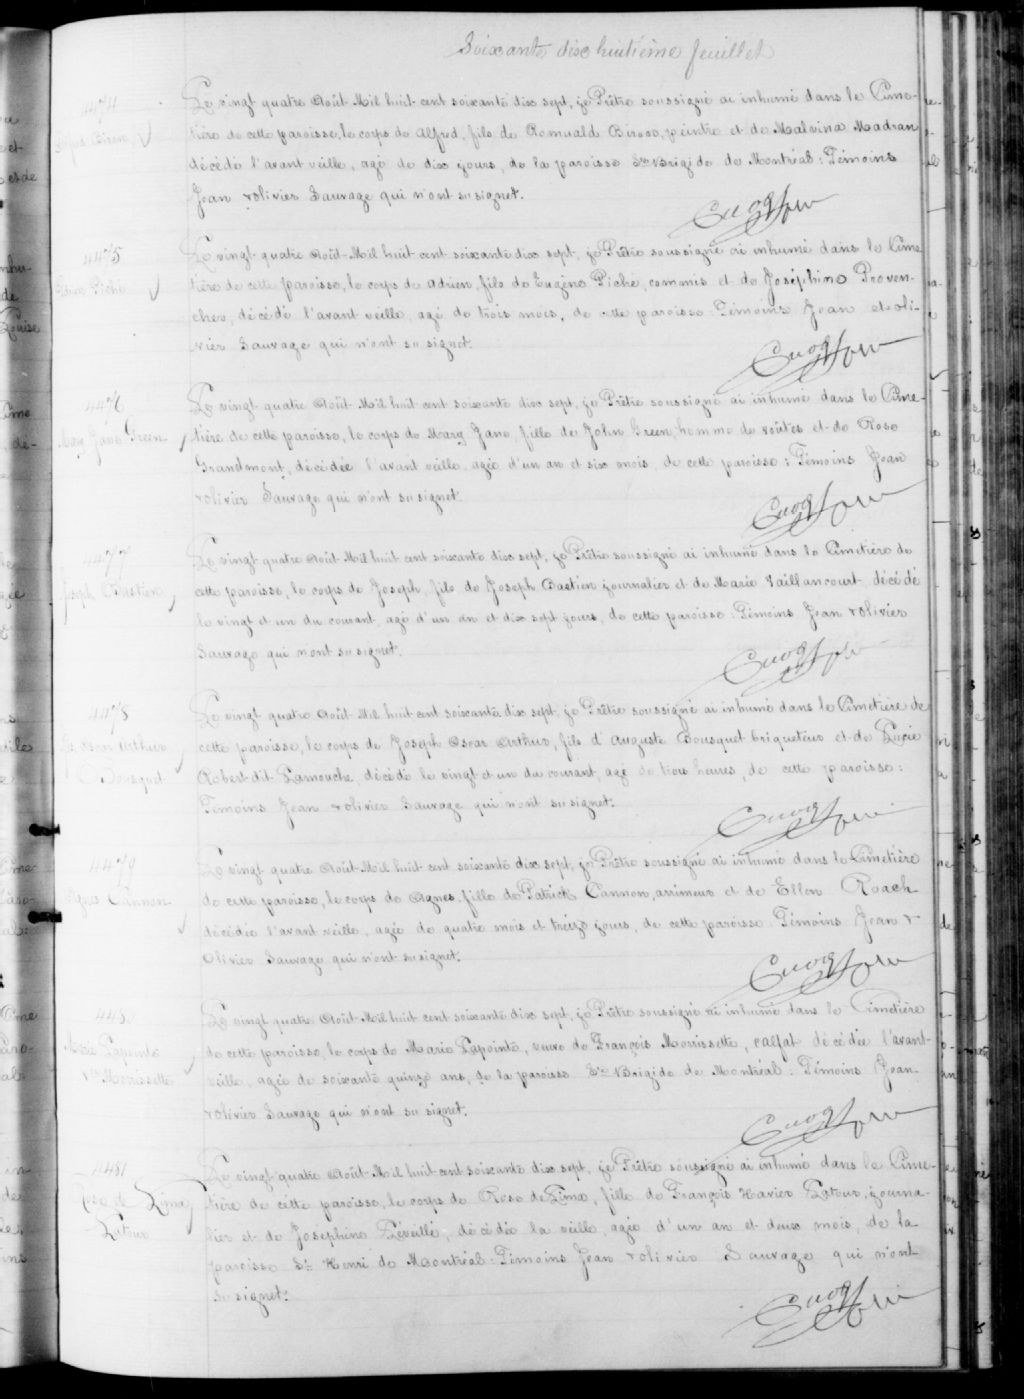 Soixante dix huitième feuillet
4474
Le vingt quatre Août Mil huit cent soixante dix sept, je Prêtre soussigné ai inhumé dans le Cime-
tière de cette paroisse, le corps de Alfred, fils de Romuald Biroso, peintre et de Malvina Madran
décédé l'avant veille, agé de dix jours, de la paroisse Ste Brigide de Montréal: Témoins
Jean & olivier Sauvage qui n'ont su signer.
Cuoq
4475
Adrien Piché
Le vingt quatre Août Mil huit cent soixante dix sept, je Prêtre soussigné ai inhumé dans le Cime
tière de cette paroisse, le corps de Adrien, fils de Eugène Piché, commis et de Joséphine Proven-
cher, décédé l'avant veille, agé de trois mois, de cette paroisse: Témoins Jean et oli-
vier Sauvage qui n'ont su signer.
Cuoq
4476
Mary Jane Green
Le vingt quatre Août Mil huit cent soixante dix sept, je Prêtre soussigné ai inhumé dans le Cime-
tière de cette paroisse, le corps de Mary Jane, fille de John Green, homme de voûtes et de Rose
Grandmont, décédée l'avant veille, agée d'un an et six mois, de cette paroisse: Témoins Jean
& olivier Sauvage qui n'ont su signer.
Cuoq
4477
Joseph Bastien
Le vingt quatre Août Mil huit cent soixante dix sept, je Prêtre soussigné ai inhumé dans le Cimetière de
cette paroisse, le corps de Joseph, fils de Joseph Bastien journalier et de Marie Vaillancourt, décédé
le vingt et un du courant, agé d'un an et dix sept jours, de cette paroisse: Témoins Jean & olivier
Sauvage qui n'ont su signer.
Cuoq
4478
Jos. Oscar Arthur
Bousquet
Le vingt quatre Août Mil huit cent soixante dix sept, je Prêtre soussigné ai inhumé dans le Cimetière de
cette paroisse, le corps de Joseph Oscar Arthur, fils d'Auguste Bousquet briqueteur et de Lucie
Robert dit Lamouche, décédé le vingt et un du courant, agé de trois heures, de cette paroisse:
Témoins Jean & olivier Sauvage qui n'ont su signer.
Cuoq
4479
Agnes Cannon
Le vingt quatre Août Mil huit cent soixante dix sept, je Prêtre soussigné ai inhumé dans le Cimetière
de cette paroisse, le corps de Agnes, fille de Patrick Cannon, arrimeur et de Ellen Roach
décédée l'avant veille, agée de quatre mois et treize jours, de cette paroisse. Témoins Jean &
Olivier Sauvage qui n'ont su signer.
Cuoq
4480
Marie Lapointe
Vve Morrissette
Le vingt quatre Août Mil huit cent soixante dix sept, je Prêtre soussigné ai inhumé dans le Cimetière
de cette paroisse, le corps de Marie Lapointe, veuve de François Morrissette, calfat décédée l'avant-
veille, agée de soixante quinze ans, de la paroisse Ste Brigide de Montréal: Témoins Jean
& olivier Sauvage qui n'ont su signer.
Cuoq
4481
Rose de Lima
Latour
Le vingt quatre Août Mil huit cent soixante dix sept, je Prêtre soussigné ai inhumé dans le Cime-
tière de cette paroisse, le corps de Rose de Lima, fille de François Xavier Latour, journa-
lier et de Josephine Léveillé, décédée la veille, agée d'un an et deux mois, de la
paroisse St. Henri de Montréal: Témoins Jean & olivier Sauvage qui n'ont
su signer.
Cuoq